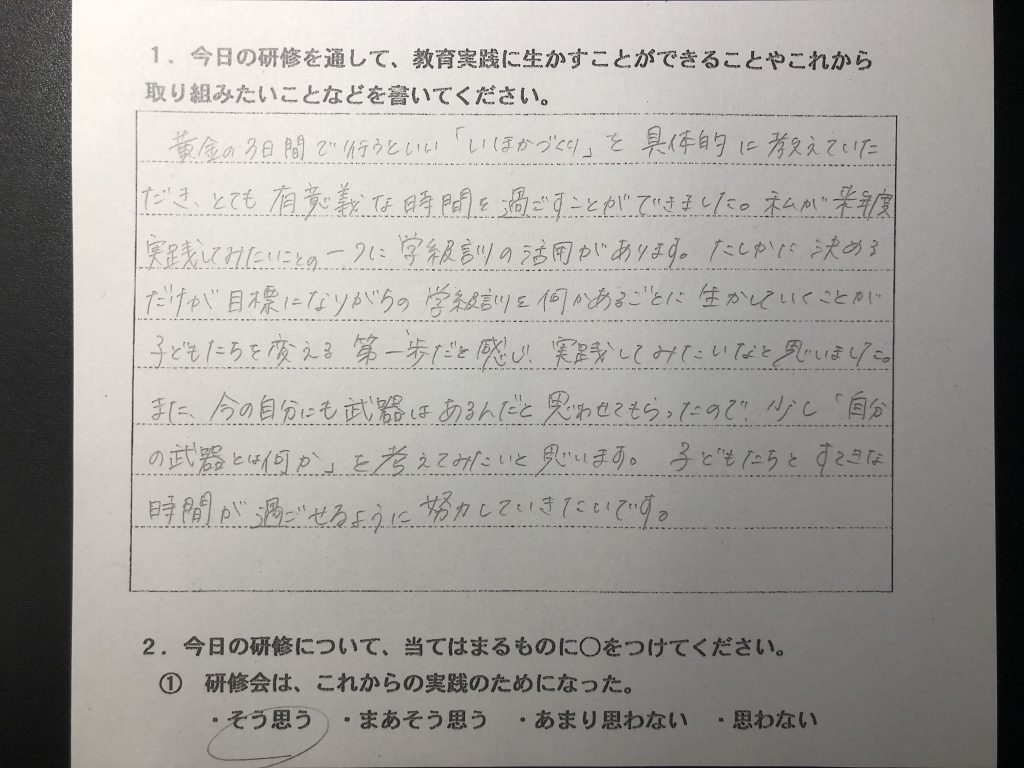 1．今日の研修を通して、教育実践に生かすことができることやこれから
取り組みたいことなどを書いてください。
黄金の3日間で行うといい「いしずかづくり」を具体的に考えていた
だき、とても有意義な時間を過ごすことができました。私が来年度
実践してみたいことの一つに学級訓の活用があります。たしかに決める
だけが目標になりがちの学級訓を何かあるごとに生かしていくことが
子どもたちを変える第一歩だと感じ、実践してみたいなと思いました。
また、今の自分にも武器はあるんだと思わせてもらったので、少し「自分
の武器とは何か」を考えてみたいと思います。子どもたちとすてきな
時間が過ごせるように努力していきたいです。
2．今日の研修について、当てはまるものに○をつけてください。
① 研修会は、これからの実践のためになった。
・そう思う ・まあそう思う ・あまり思わない ・思わない